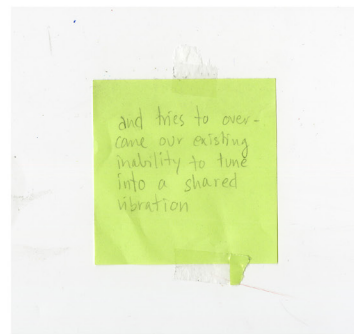 and tries to over-
come our existing
inability to tune
into a shared
vibration